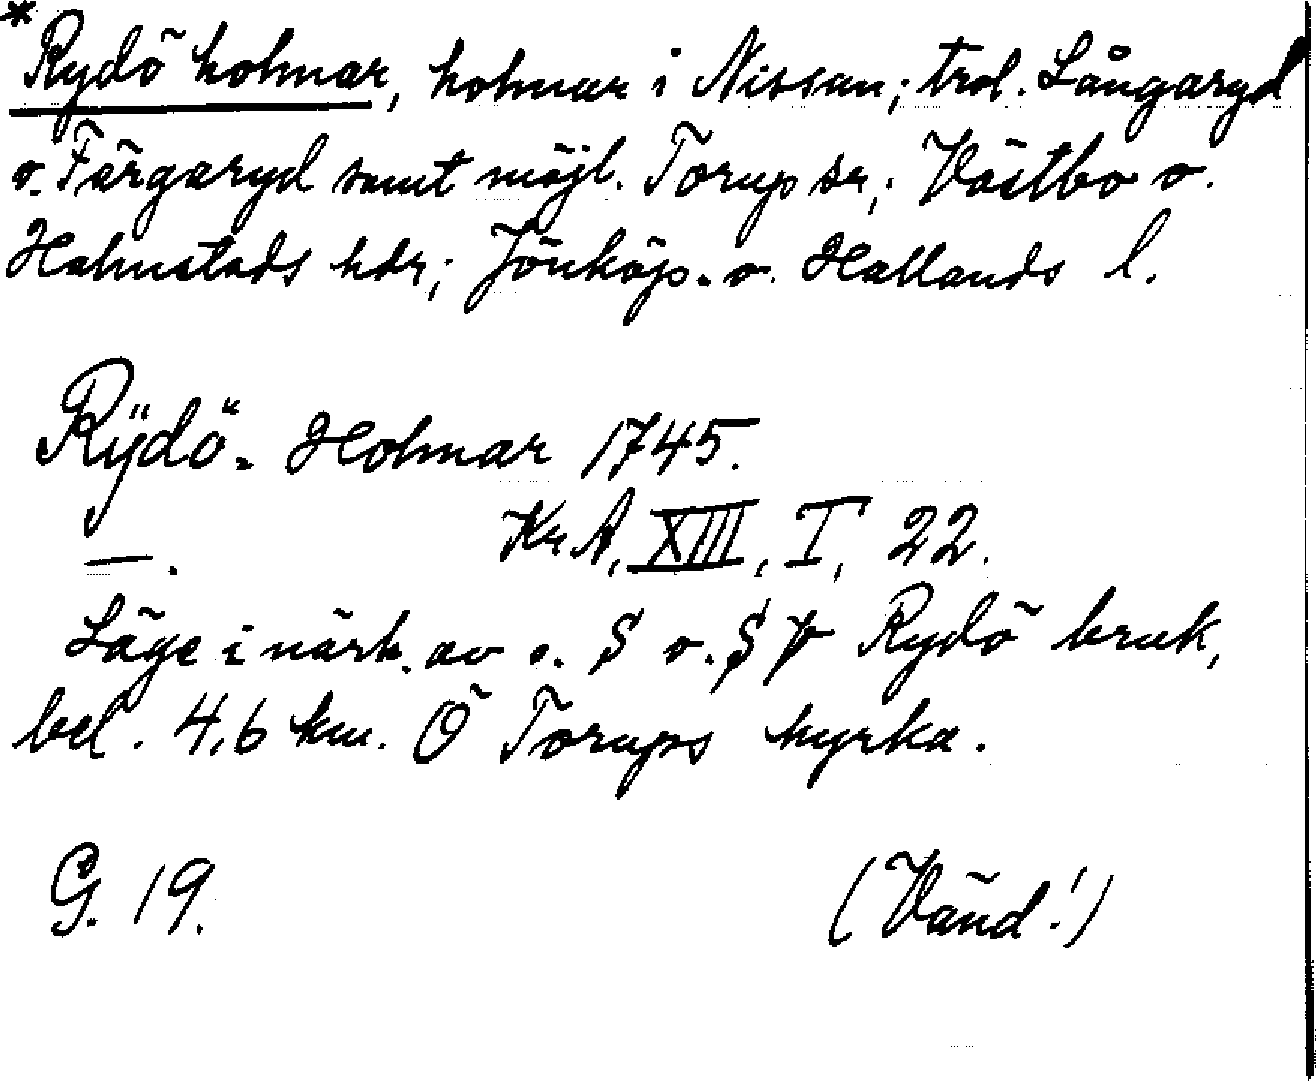 *Rydö holmar, holmar i Nissan; trol. Långaryd
o. Färgaryd samt möjl. Torup sr; Västbo o.
Halmstads hdr; Jönköp. o. Hallands l.
Rÿdö- Holmar 1745.
Kr A, XIII, I, 22.
—.
Läge i närh. av s. § o. §§ Rydö bruk,
bel. 4,6 km. Ö Torups kyrka.
G. 19. (Vänd!)